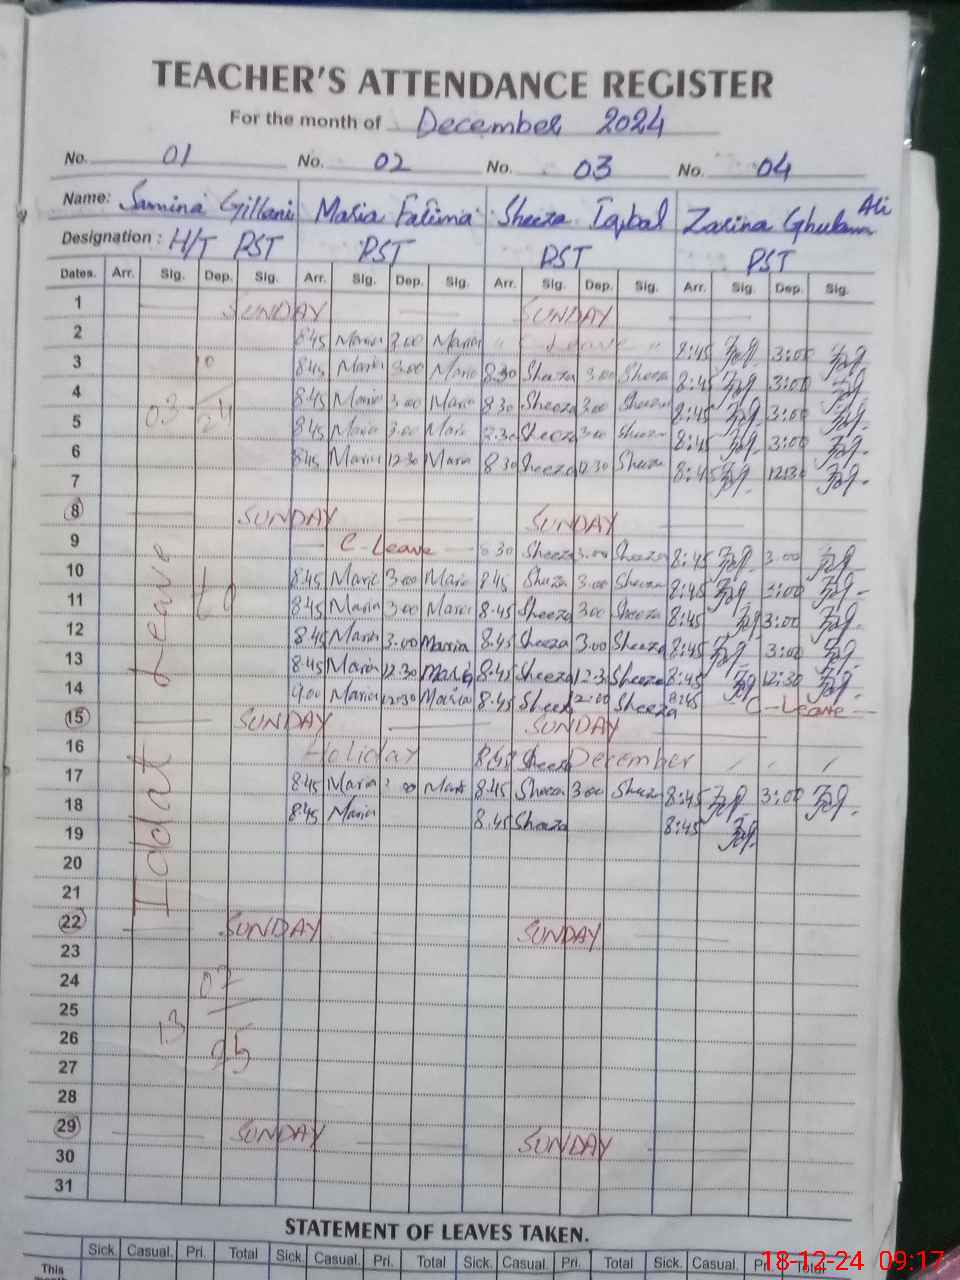 TEACHER'S ATTENDANCE REGISTER
For the month of December 2024
No. 01 No. 02 No. 03 No. 04
Name: Samina Gillani Maria Fatima Sheeza Iqbal Zarina Ghulam Ali
Designation : H/T PST PST PST PST
Dates. Arr. Sig. Dep. Sig. Arr. Sig. Dep. Sig. Arr. Sig. Dep. Sig. Arr. Sig. Dep. Sig.
1 SUNDAY SUNDAY
2 8:45 Maria 3.00 Maria " C-Leave " 8:45 3:00
3 8:45 Maria 3.00 Maria 8.30 Sheeza 3.00 Sheeza 8:45 3:00
4 8:45 Maria 3.00 Maria 8.30 Sheeza 3.00 Sheeza 8:45 3:00
5 8:45 Maria 3.00 Maria 8.30 Sheeza 3.00 Sheeza 8:45 3:00
6 8:45 Maria 12.30 Maria 8.30 Sheeza 12.30 Sheeza 8:45 12:30
7
8 SUNDAY SUNDAY
9 C-Leave 8.30 Sheeza 3.00 Sheeza 8:45 3.00
10 8:45 Maria 3.00 Maria 8.45 Sheeza 3.00 Sheeza 8:45 3:00
11 8:45 Maria 3.00 Maria 8.45 Sheeza 3.00 Sheeza 8:45 3:00
12 8:45 Maria 3.00 Maria 8.45 Sheeza 3.00 Sheeza 8:45 3:00
13 8:45 Maria 12.30 Maria 8.45 Sheeza 12.3 Sheeza 8:45 12:30
14 9.00 Maria 12.30 Maria 8.45 Sheeza 2:00 Sheeza 8:45 C-Leave
15 SUNDAY SUNDAY
16 Holiday 8.45 Sheeza December
17 8:45 Maria Maria 8.45 Sheeza 3.00 Sheeza 8:45 3:00
18 8:45 Maria 8.45 Sheeza 8:45
19
20
21
22 SUNDAY SUNDAY
23
24
25
26
27
28
29 SUNDAY SUNDAY
30
31
03 24
to
Iddat Leave
13 02 25
STATEMENT OF LEAVES TAKEN.
Sick. Casual. Pri. Total Sick. Casual. Pri. Total Sick. Casual. Pri. Total Sick. Casual. Total
This
18-12-24 09:17